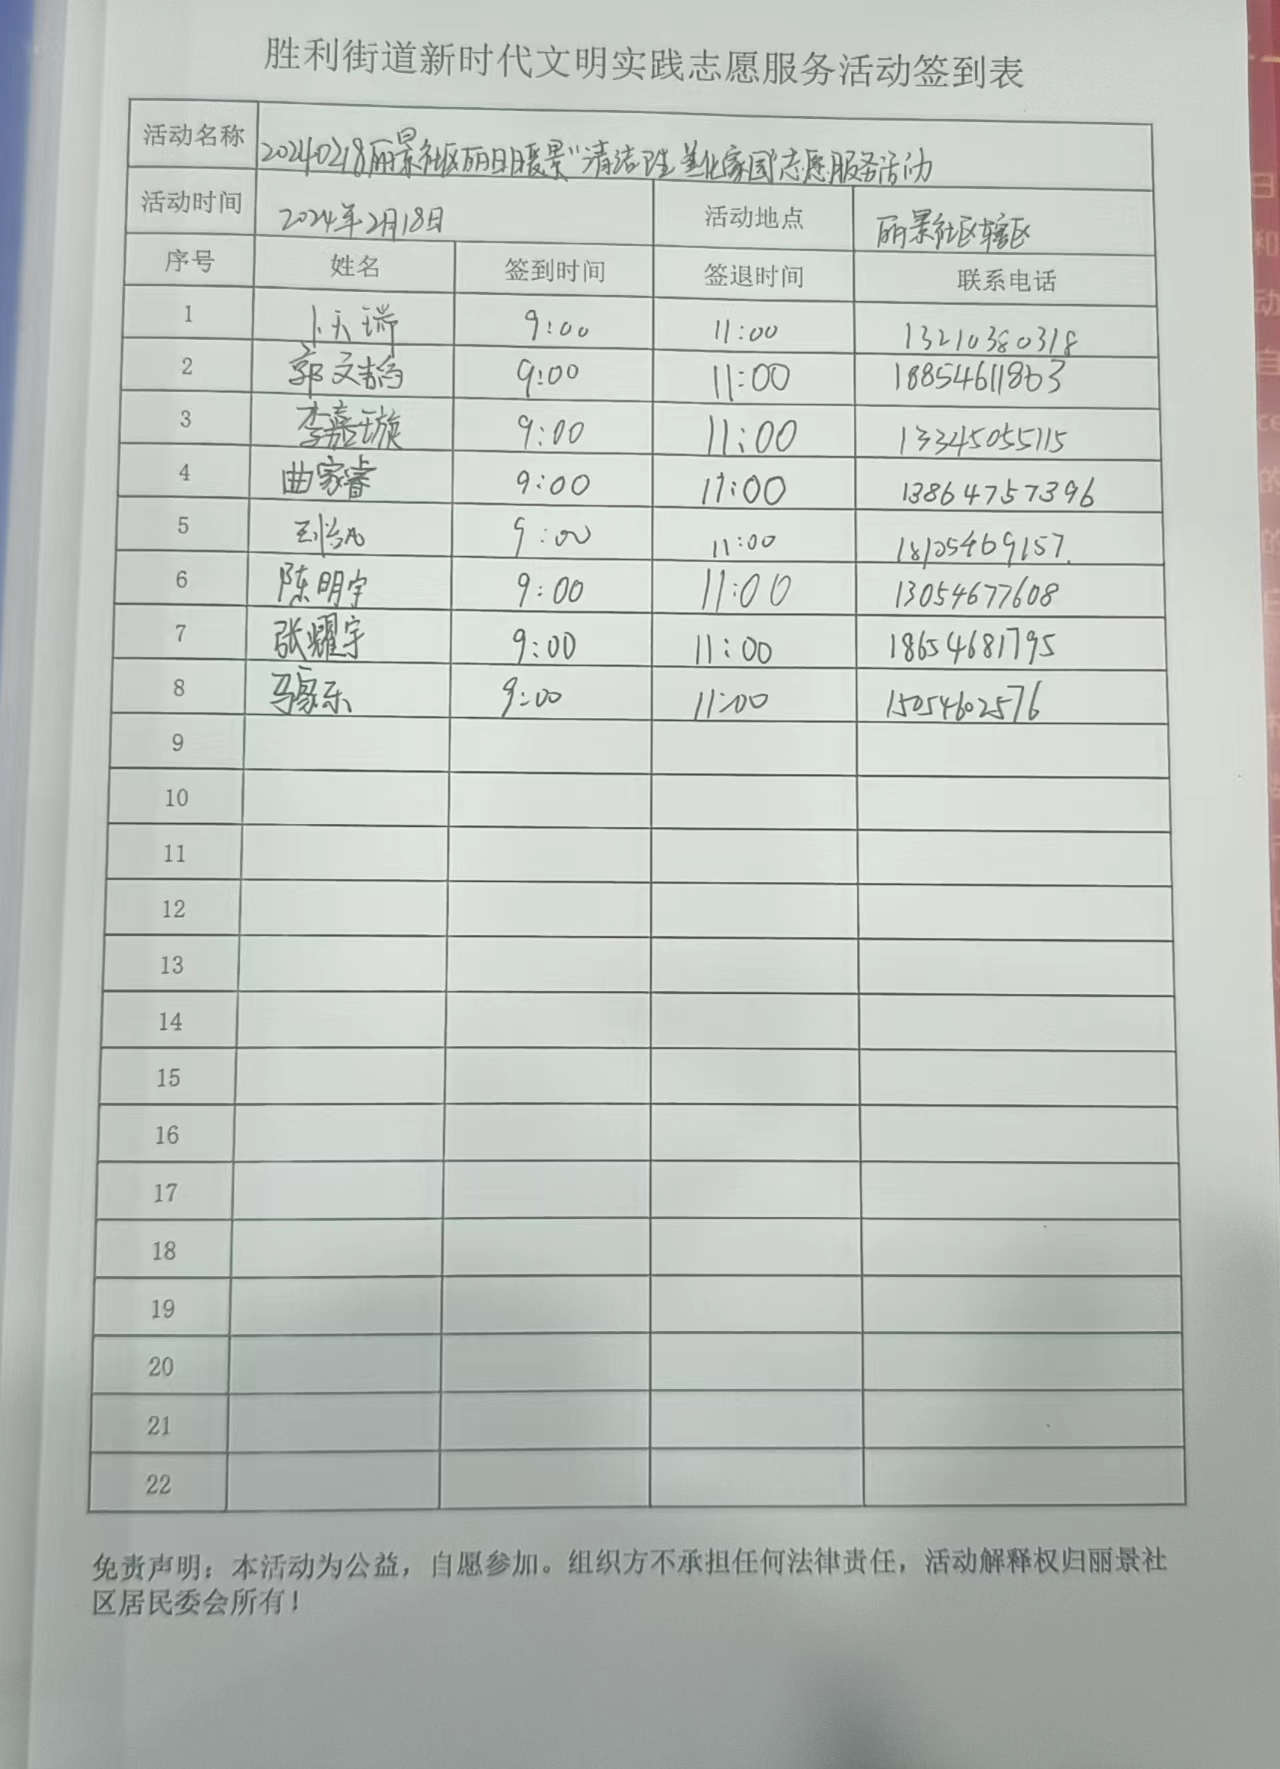 胜利街道新时代文明实践志愿服务活动签到表
活动名称 20240218丽景社区丽日暖景"清洁 美化家园志愿服务活动
活动时间 2024年2月18日 活动地点 丽景社区辖区
序号 姓名 签到时间 签退时间 联系电话
1 卜天瑞 9:00 11:00 13210380318
2 郭文 9:00 11:00 18854611863
3 李嘉璇 9:00 11:00 13345055115
4 曲家睿 9:00 11:00 13864757396
5 9:00 11:00 18105469157.
6 陈明宇 9:00 11:00 13054677608
7 张耀宇 9:00 11:00 18654681795
8 马家乐 9:00 11:00 15054602576
9
10
11
12
13
14
15
16
17
18
19
20
21
22
免责声明：本活动为公益，自愿参加。组织方不承担任何法律责任，活动解释权归丽景社
区居民委会所有！